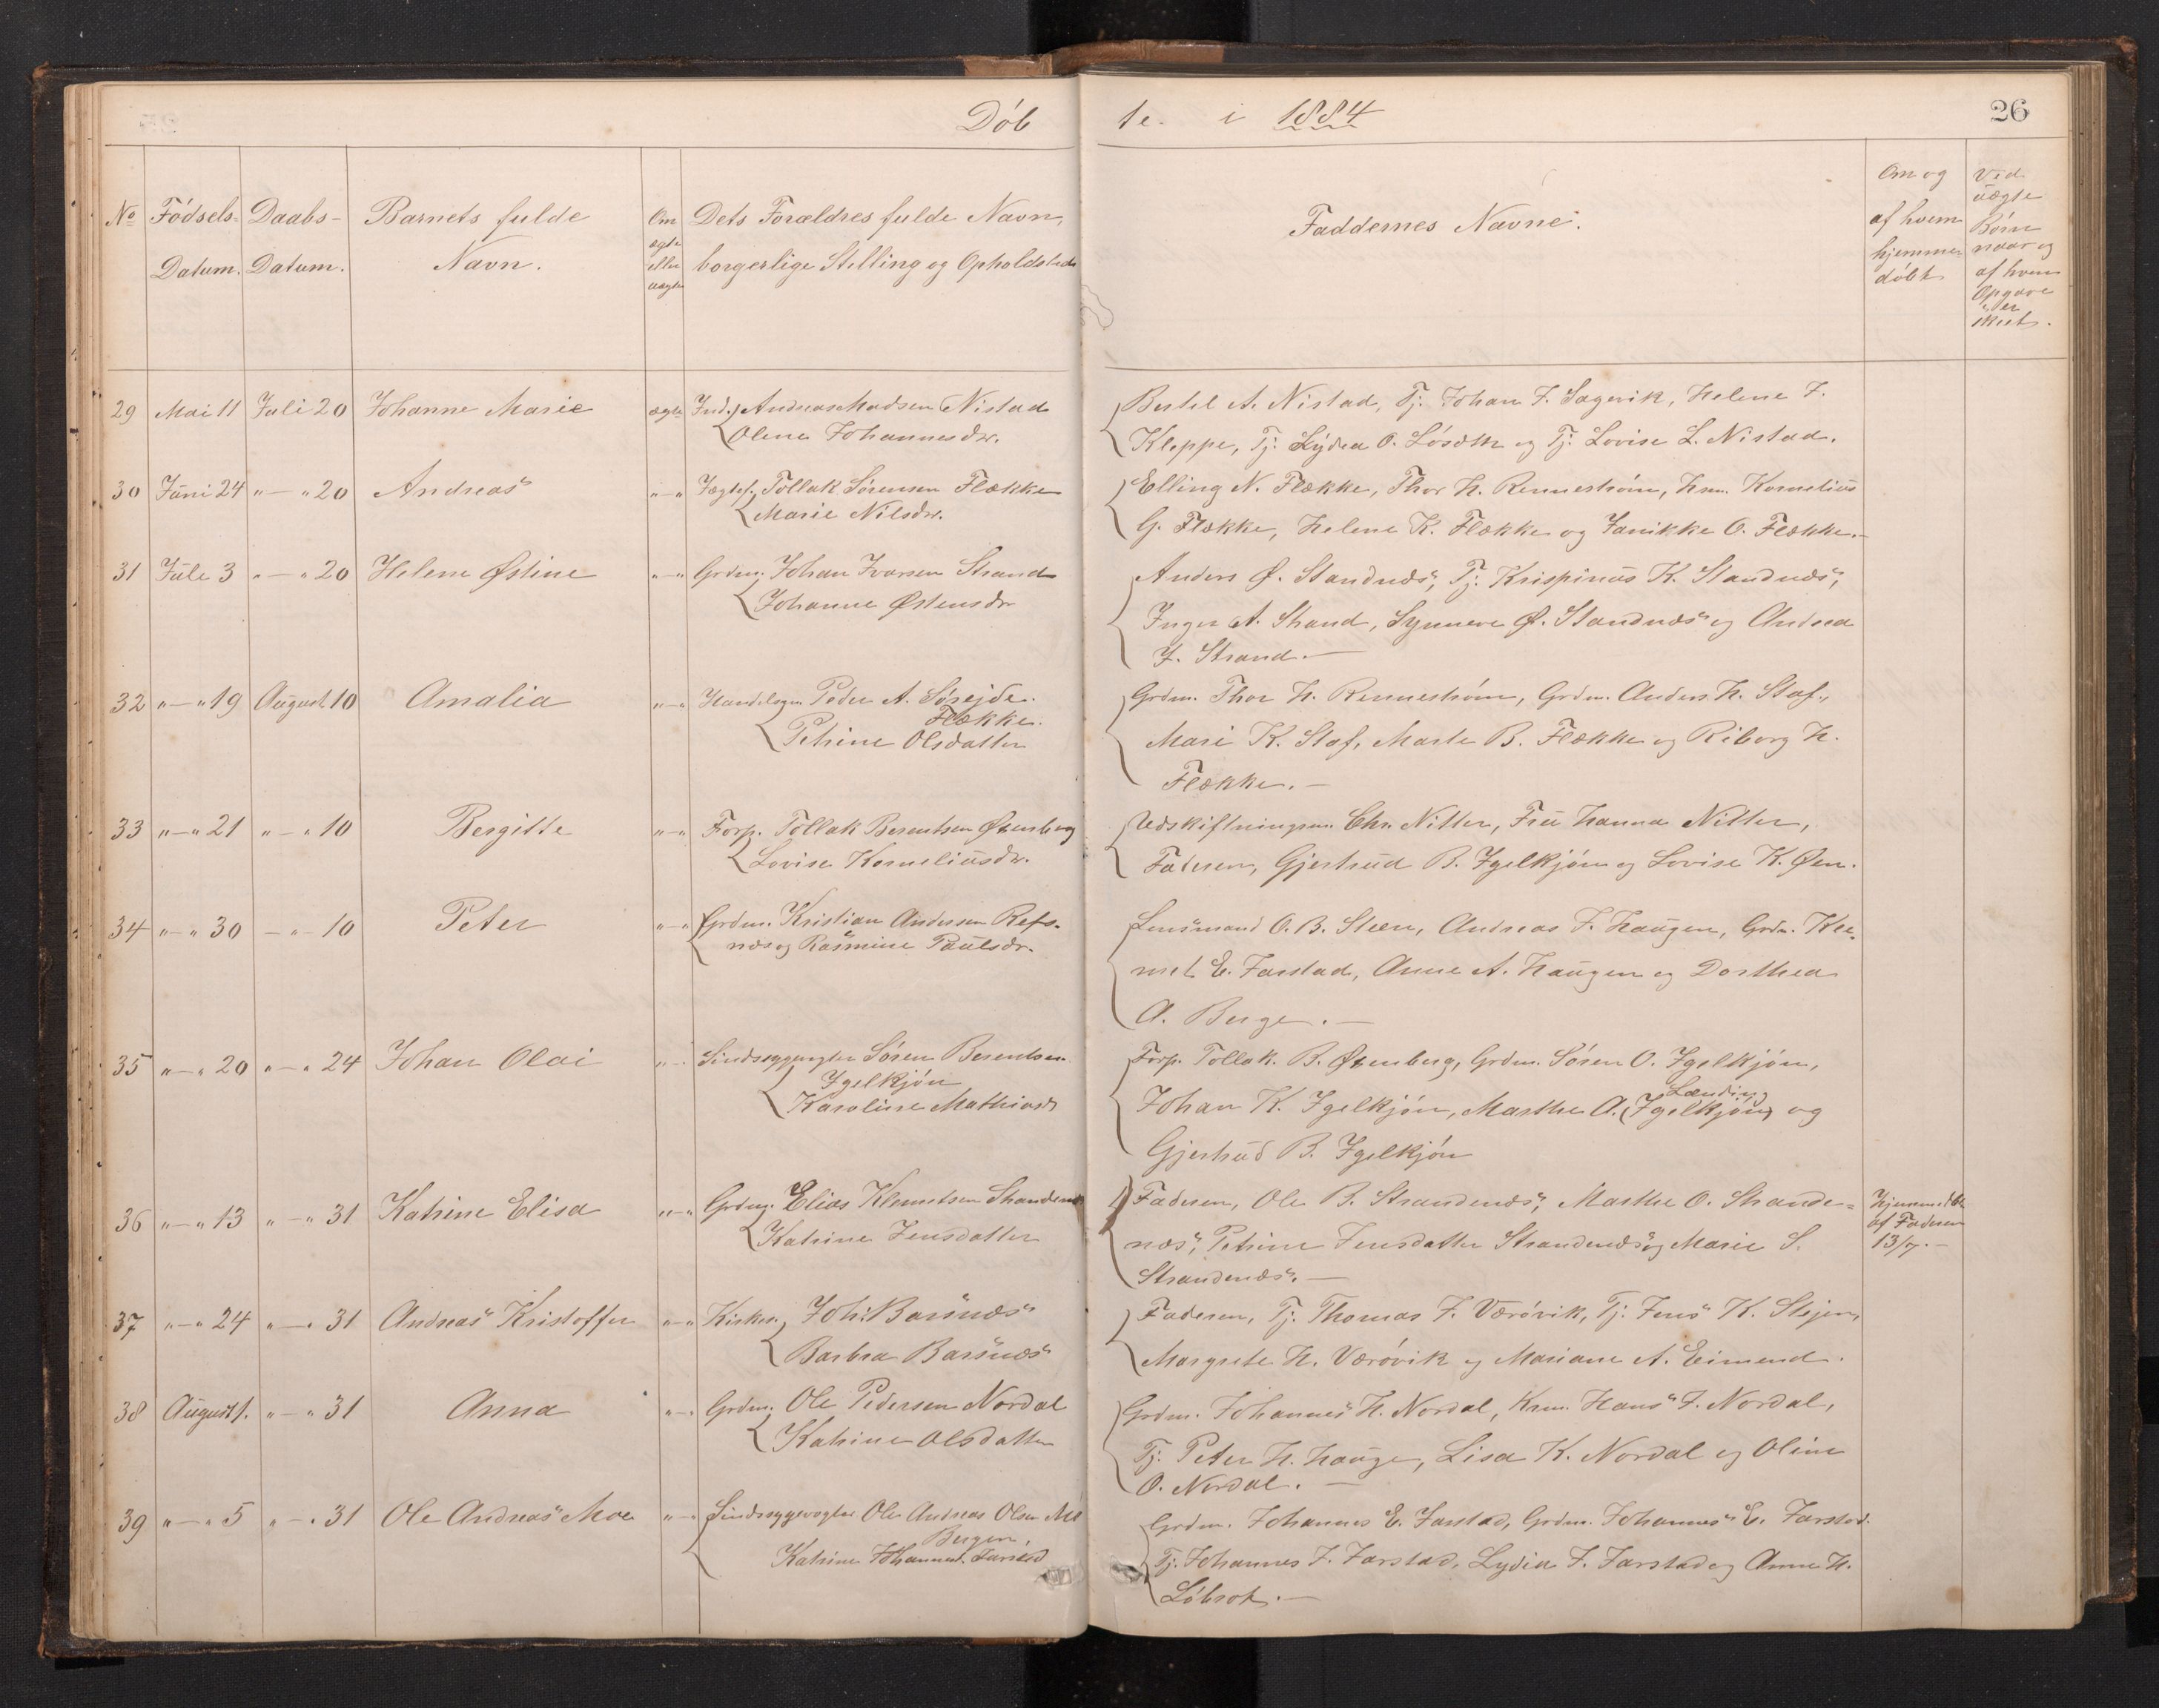 Døb
te. i 1884
26
No
Fødsels-
Datum.
Daabs-
Datum.
Barnets fulde
Navn.
Om
ægte
eller
uægte
Dets Forældres fulde Navn,
borgerlige Stilling og Opholdsted
Faddernes Navne.
Om og
af hvem
hjemme-
døbt
Ved
uægte
Børn
naar og
af hvem
Opgave
er
skeet.
29 Mai 11 Juli 20 Johanne Marie ægte Ind. Andreas Madsen Nistad
Olene Johannesdr.
Bertel A. Nistad, Tj. Johan J. Sagevik, Helene J.
Kleppe, Tj. Lydia O. og Tj. Lovise L. Nistad.
30 Juni 24 "—"20 Andreas "—" Jægtef. Tollak Sørensen Flække
Marie Nilsdr.
Elling N. Flække, Thor H. Rennestrøm, Hsm. Kornelius
G. Flække, Helene K. Flække og Janikke O. Flække.—
31 Juli 3 "—"20 Helene Østine "—" Grdm. Johan Ivarsen Strand
Johanne Østensdr
Anders Ø. Standnæs, Tj. Krispinus K. Standnæs,
Inger A. Strand, Synneve Ø. Standnæs og Andrea
J. Strand.—
32 "—"19 August 10 Amalia "—" Handelsm. Peder A. Sørejde.
Flække.
Petrine Olsdatter
Grdm. Thor H. Rennestrøm, Grdm. Anders H. Staf.,
Mari K. Staf, Marte B. Flække og Riborg H.
Flække.—
33 "—"21 "—"10 Bergitte "—" Forp. Tollak Berentsen Øvenberg
Lovise Korneliusdr.
Udskiftningsm. Chr. Nitter, Fru Hanna Nitter,
Faderen, Gjertrud B. Igelkjøn og Lovise K. Øen.
34 "—"30 —"—10 Peter "—" Grdm. Kristian Andersen Refs-
næs og Rasmine Paulsdr.
Lensmand O. B. Steen, Andreas J. Haugen, Grdm. Kle-
met E. Farstad, Anne A. Haugen og Dorthea
A. Berge.—
35 "—"20 "—"24 Johan Olai "—" Sindssygevogter Søren Berentsen
Igelkjøn
Karoline Mathiasdr
Forp. Tollak. B. Øvenberg, Grdm. Søren O. Igelkjøn,
Lending
Johan K. Igelkjøn, Marthe A. (Igelkjøn) og
Gjertrud B. Igelkjøn
36 "—"13 "—"31 Katrine Elisa "—" Grdm. Elias Klemetsen Strandenæs
Katrine Jensdatter
Faderen, Ole B. Strandenæs, Marthe O. Strande-
næs, Petrine Jensdatter Strandenæs og Marie S.
Strandenæs.—
Hjemmedbt
af Faderen
13/7.—
37 "—"24 "—"31 Andreas Kristoffer "—" Kirkes. Joh. Barsnæs
Barbra Barsnæs
Faderen, Tj. Thomas J. Værøvik, Tj. Jens K. Stejen,
Margrete H. Værøvik og Mariane A. Eimend.
38 August 1. "—"31 Anna "—" Grdm. Ole Pedersen Nordal
Katrine Olsdatter
Grdm. Johannes H. Nordal, Krm. Hans J. Nordal,
Tj. Peter H. Hauge, Lisa K. Nordal og Oline
O. Nordal.—
39 "—"5 "—"31 Ole Andreas Moe "—" Sindssygevogter Ole Andreas Olsen
Bergen,
Katrine Johannesd. Farstad
Grdm. Johannes E. Farstad, Grdm. Johannes E. Farstad.
Tj. Johannes J. Farstad, Lydia J. Farstad og Anne H.
Løbrok.—